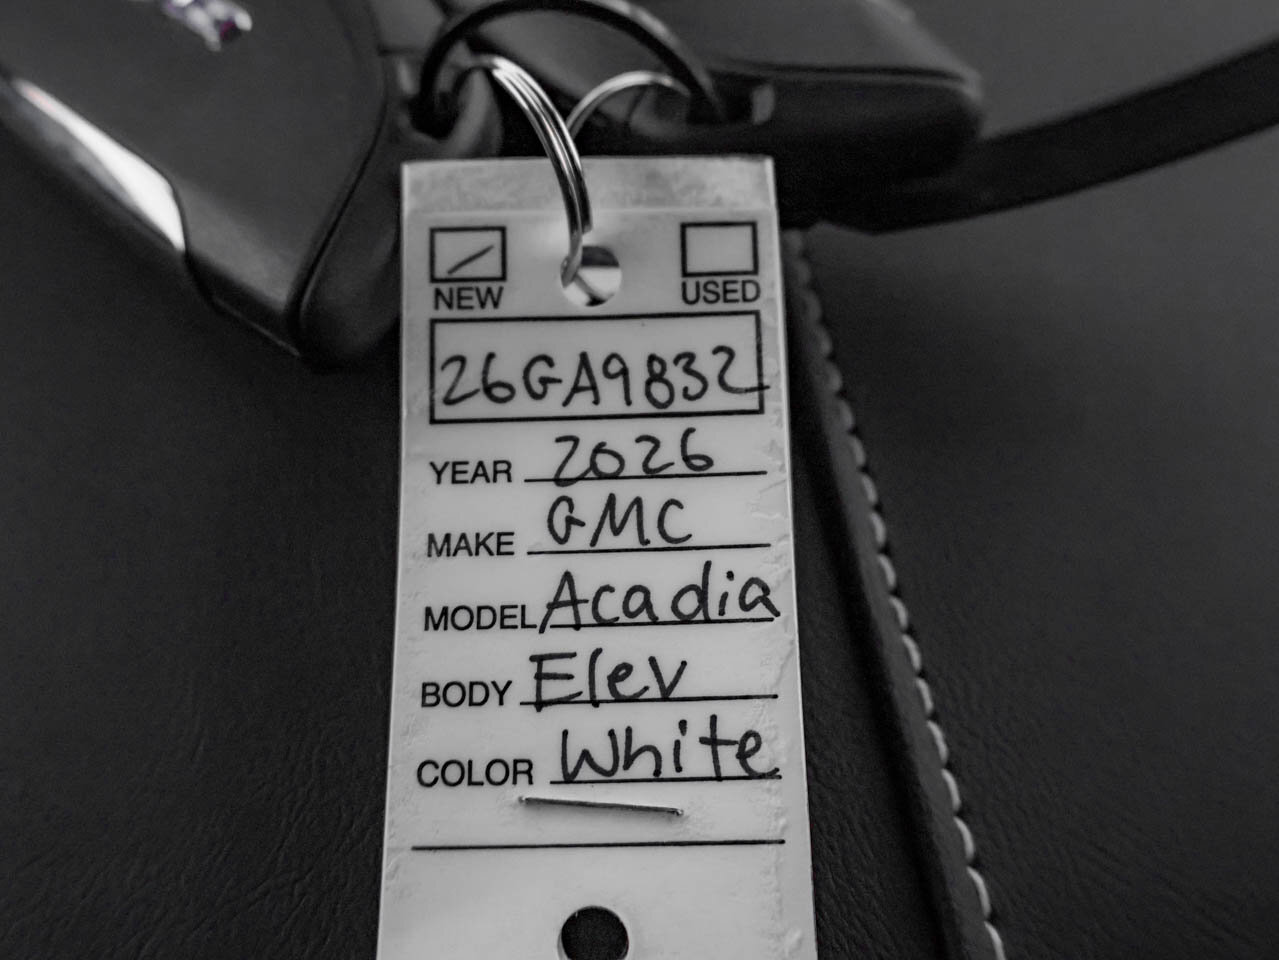 NEW USED
26GA9832
YEAR 2026
MAKE GMC
MODEL Acadia
BODY Elev
COLOR White